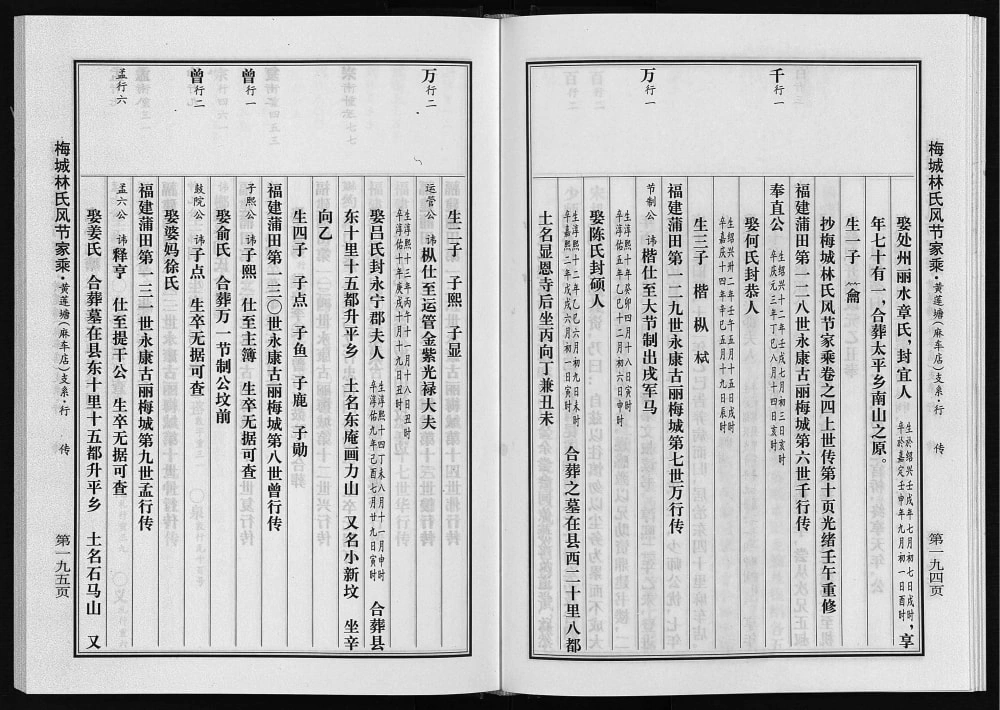 梅城林氏风节家乘·黄莲塘(麻车店)支系·行 传 第一九四页
娶处州丽水章氏，封宜人 生於绍兴壬戌年七月初七日戌时，享
卒於嘉定壬申年九月初一日酉时
年七十有一，合葬太平乡南山之原。
生一子
抄梅城林氏风节家乘卷之四上世传第十页光绪壬午重修
福建莆田第一二八世永康古丽梅城第六世千行传
千行一
奉直公 生绍兴十二年壬戌七月初三日亥时
卒庆元三年丁巳八月十四日亥时
娶何氏封恭人
生绍兴卅二年壬午五月十五日戌时
卒嘉庆十四年辛巳五月十九日辰时
生三子 楷 枞 栻
福建莆田第一二九世永康古丽梅城第七世万行传
万行一
节制公 讳楷仕至大节制出戌军马
生淳熙十年癸卯四月十八日寅时
卒淳佑五年乙巳十二月初六日申时
娶陈氏封硕人
生淳熙十二年乙巳六月初九日未时
卒嘉熙二年戊戌六月初一日寅时
合葬之墓在县西二十里八都
土名显恩寺后坐丙向丁兼丑未
生二子 子熙 子显
万行二
运管公 讳枞仕至运管金紫光禄大夫
生淳熙十三年丙午十一月十八日丑时
卒淳佑十年庚戌十月十九日丑时
娶吕氏封永宁郡夫人 生淳熙十四丁未八月十一月申时
卒淳佑九年己酉七月廿九日寅时
合葬县
东十里十五都升平乡 土名东庵画力山 又名小新坟 坐辛
向乙
生四子 子点 子鱼 子鹿 子勋
福建蒲田第一三〇世永康古丽梅城第八世曾行传
曾行一
子熙公 讳子熙 仕至主簿 生卒无据可查
娶俞氏 合葬万一节制公坟前
曾行二
鼓院公 讳子点 生卒无据可查
娶婆妈徐氏
福建蒲田第一三一世永康古丽梅城第九世孟行传
孟行六
孟六公 讳释亨 仕至提干公 生卒无据可查
娶姜氏 合葬墓在县东十里十五都升平乡 土名石马山 又
梅城林氏风节家乘·黄莲塘(麻车店)支系·行 传 第一九五页